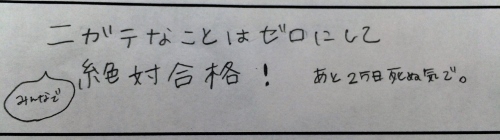 ニガテなことはゼロにして
みんなで
絶対合格!
あと2万日死ぬ気で。